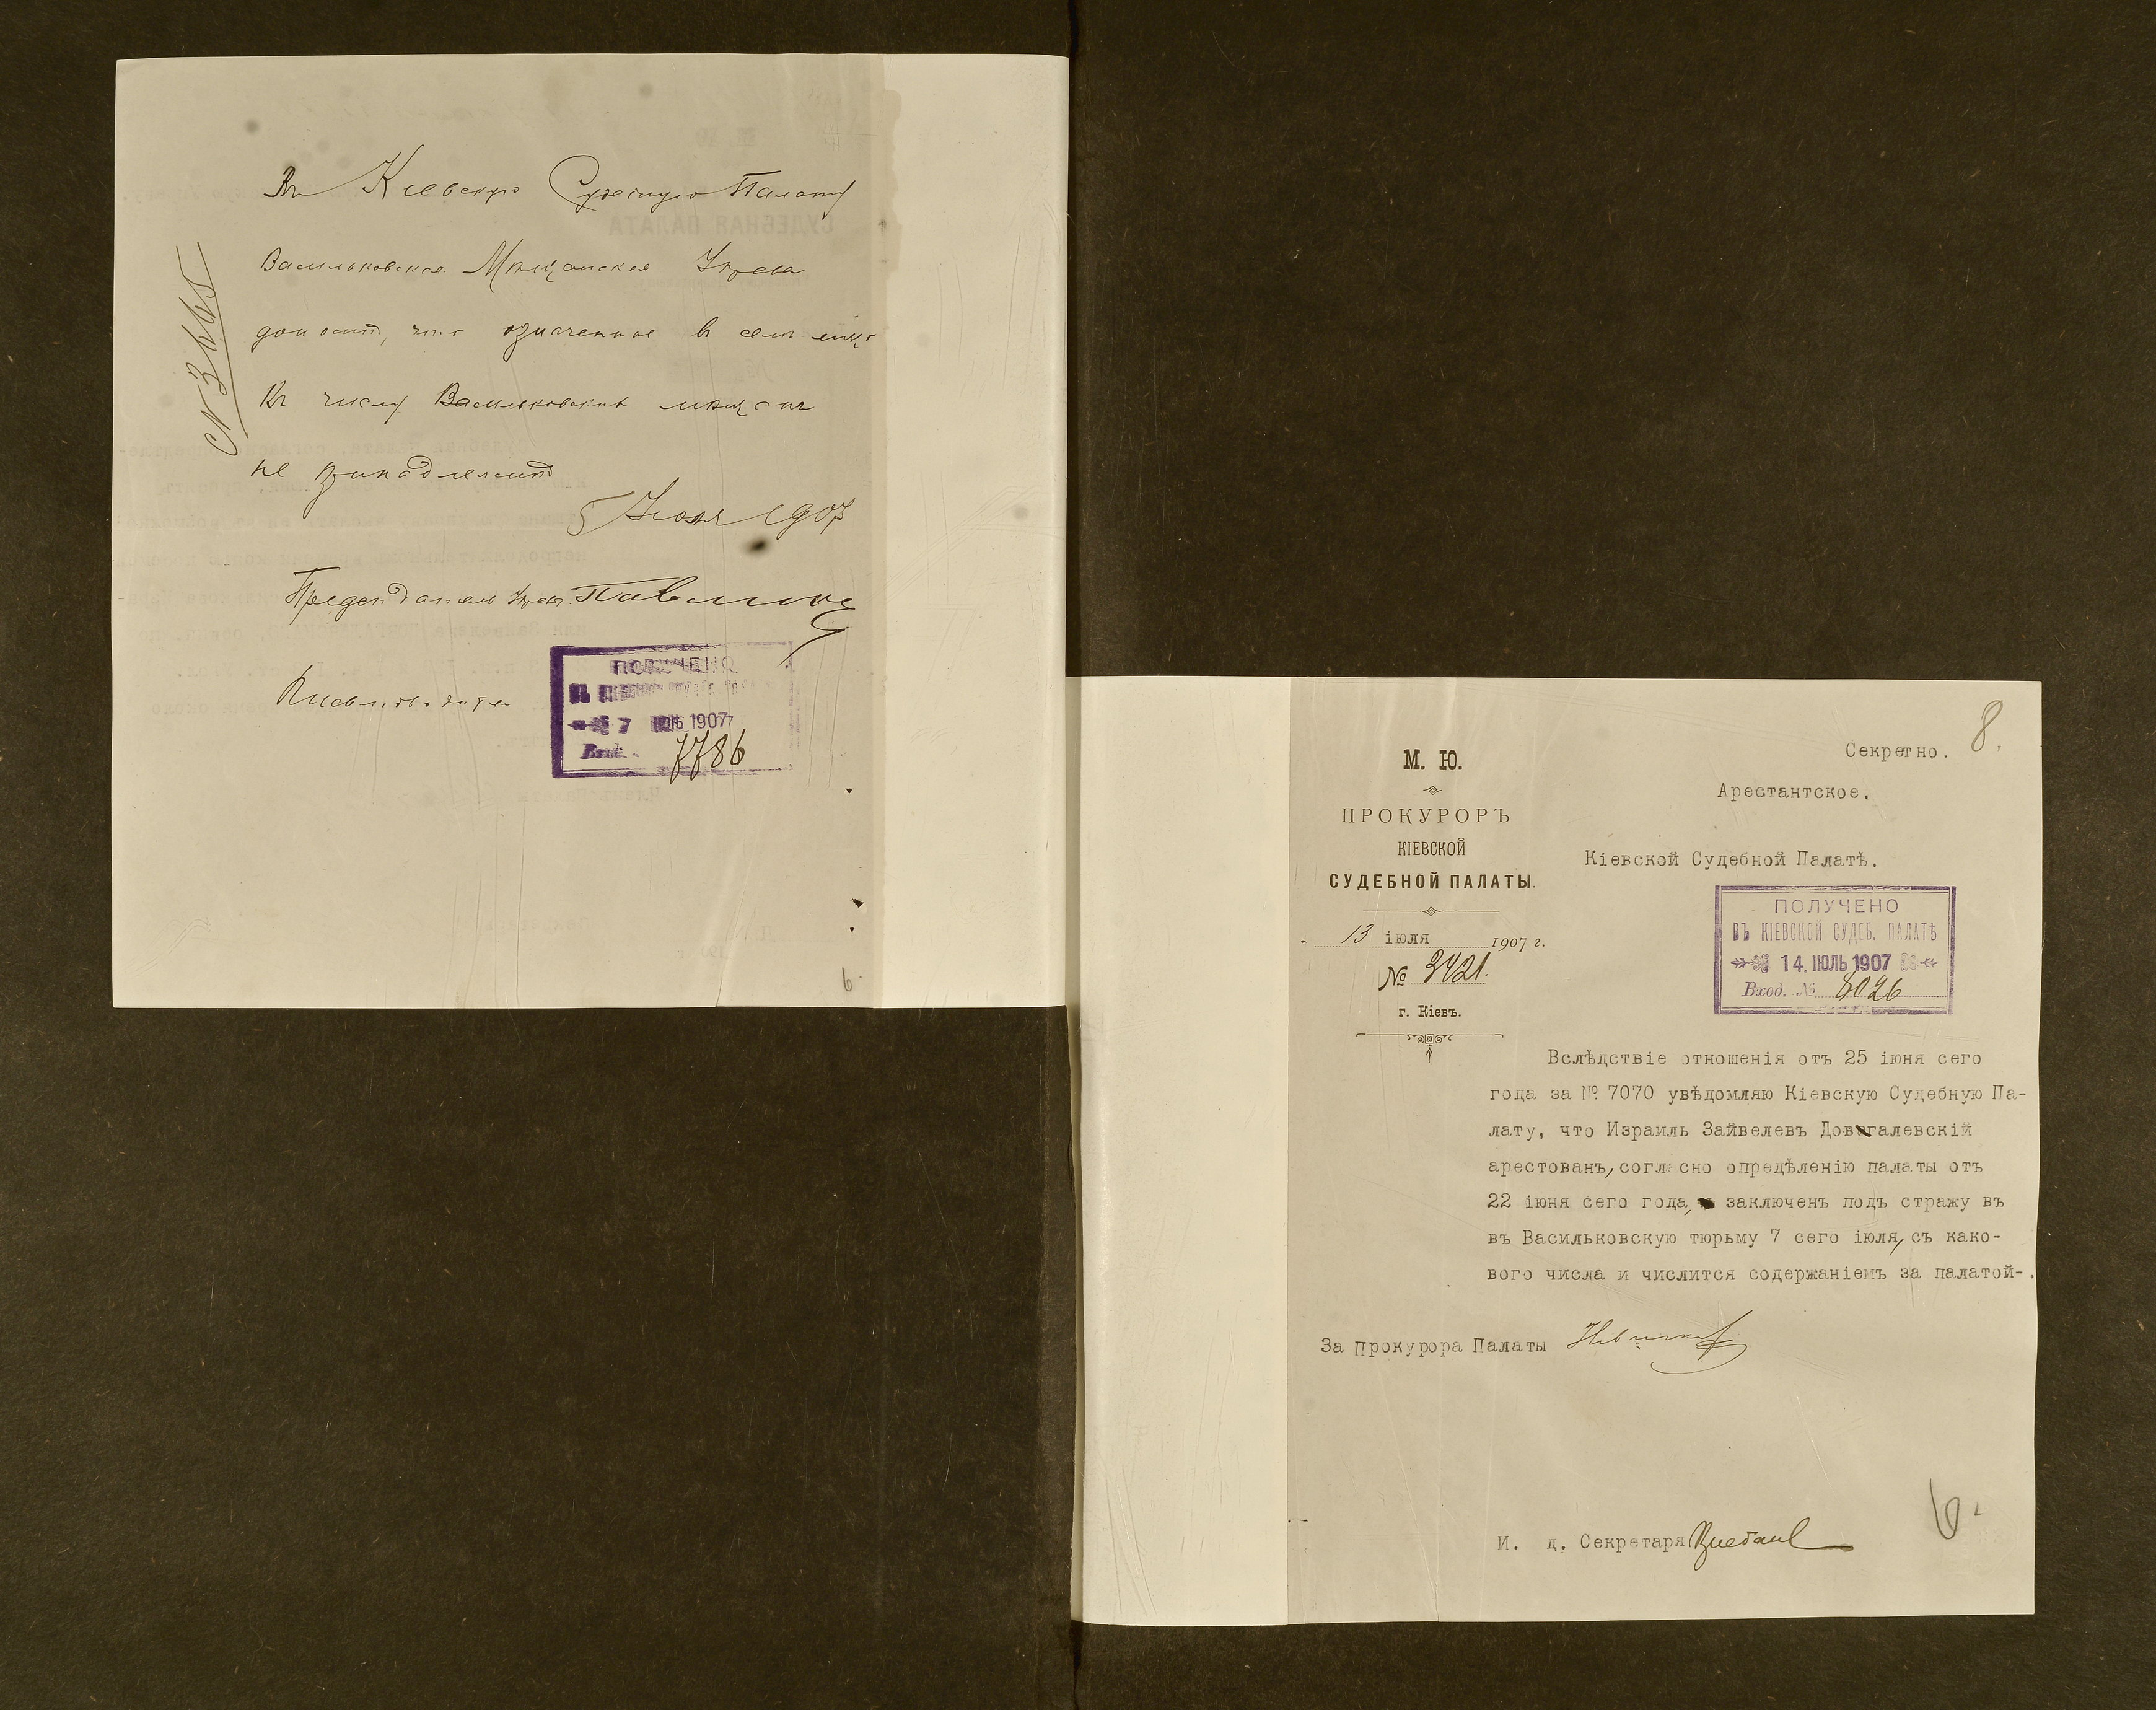 Въ Кіевскую Судебную Палату
Васильковская Мѣщанская Управа
доноситъ, что означенное в семъ лицо
Къ числу Васильковскихъ мѣщанъ
не принадлежитъ
5 Июля 1907
Председатель Управ.
ПОЛУЧЕНО
7 ІЮЛЬ 1907
Вход. 7786
6
8.
Секретно.
Арестантское.
М. Ю.
ПРОКУРОРЪ
КІЕВСКОЙ
СУДЕБНОЙ ПАЛАТЫ.
13 іюля 1907 г.
№ 3421.
г. Кіевъ.
Кіевской Судебной Палатѣ.
ПОЛУЧЕНО
ВЪ КІЕВСКОЙ СУДЕБ. ПАЛАТѢ
14. ІЮЛЬ 1907
Вход. № 8026
Вслѣдствіе отношенія отъ 25 іюня сего
года за № 7070 увѣдомляю Кіевскую Судебную Па-
лату, что Израиль Зайвелевъ Довгалевскій
арестованъ, согласно опредѣленію палаты отъ
22 іюня сего года, заключенъ подъ стражу въ
въ Васильковскую тюрьму 7 сего іюля, съ како-
вого числа и числится содержаніемъ за палатой-.
За Прокурора Палаты
И. д. Секретаря